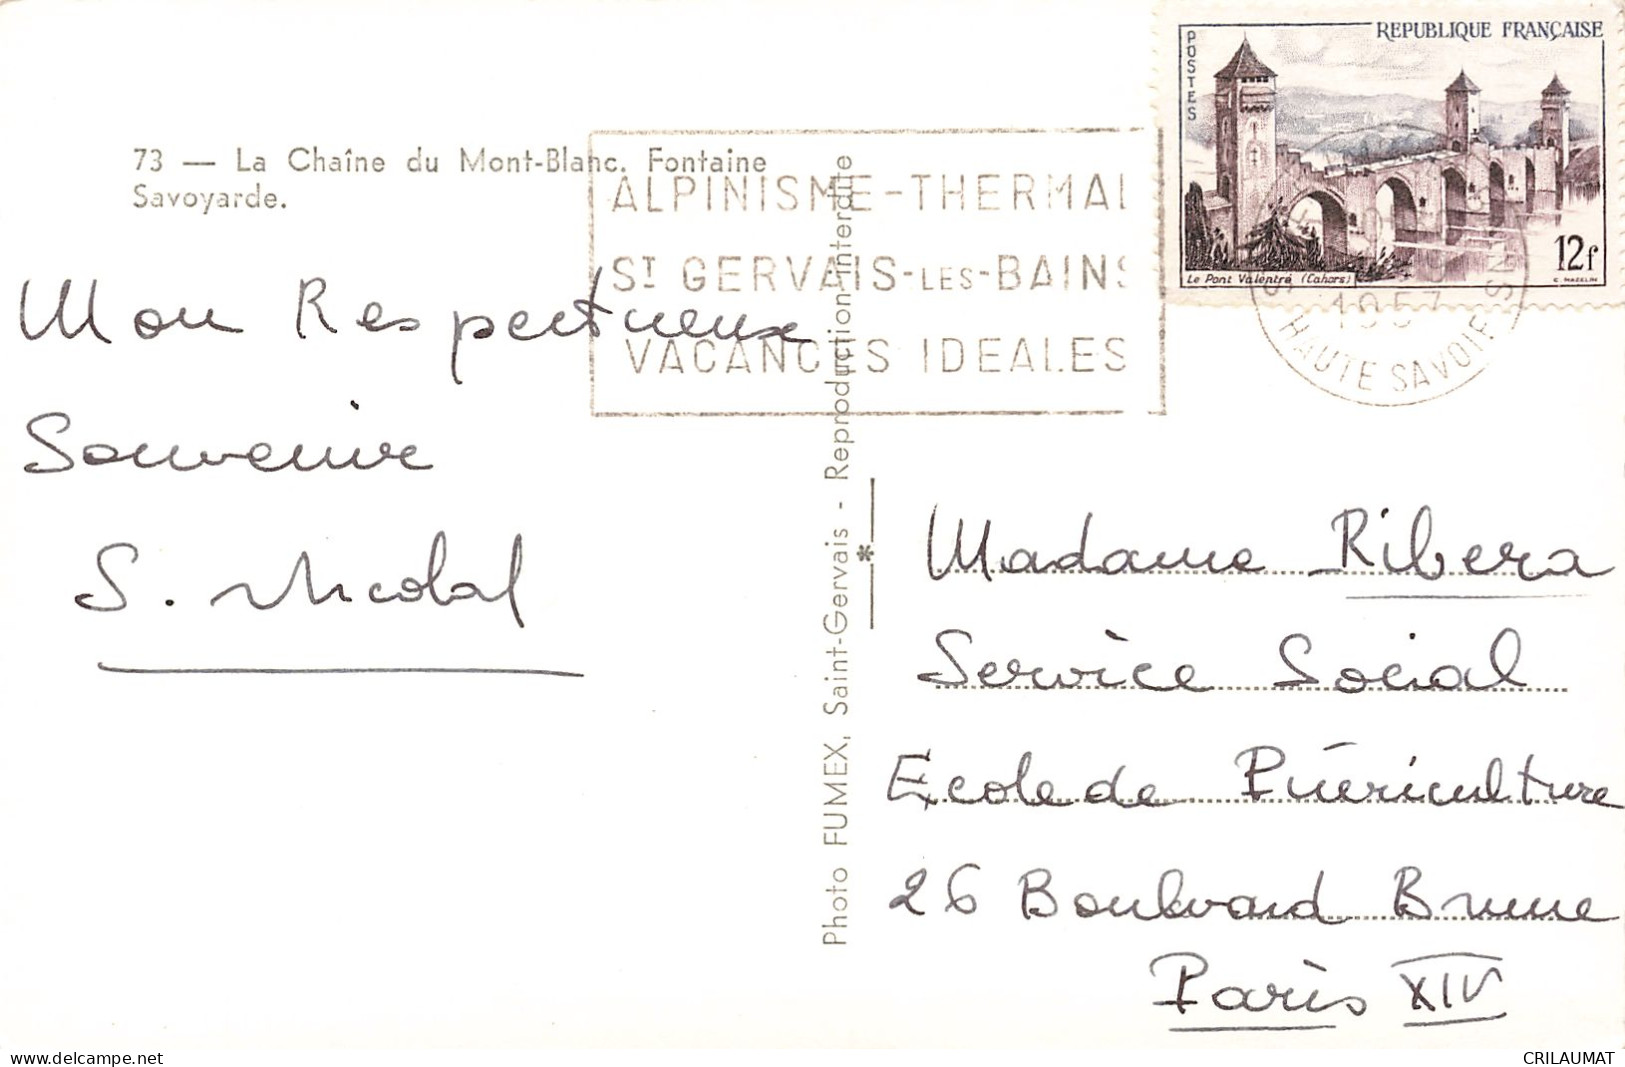 73 — La Chaîne du Mont-Blanc. Fontaine
Savoyarde.
Mon Respectueux
Souvenir
S. Nicolal
ALPINISME-THERMAL
ST GERVAIS-LES-BAINS
VACANCES IDEALES
Photo FUMEX, Saint-Gervais - Reproduction interdite
REPUBLIQUE FRANÇAISE
POSTES
12f
Le Pont Valentré (Cahors)
1957
HAUTE SAVOIE
Madame Ribera
Service Social
Ecole de Puériculture
26 Boulevard Brune
Paris XIV
CRILAUMAT
delcampe.net